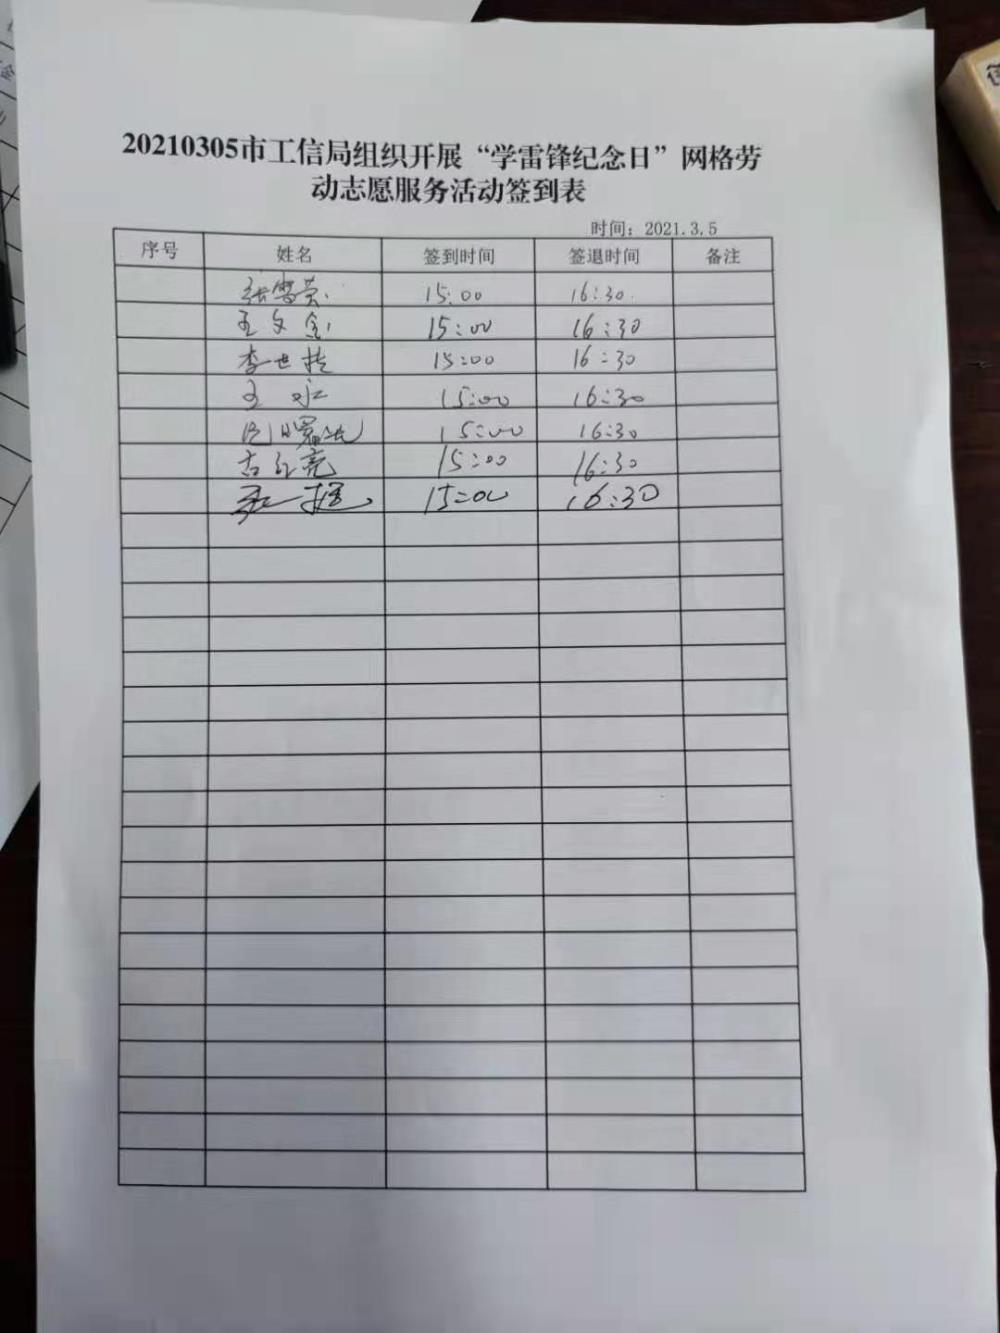 20210305市工信局组织开展“学雷锋纪念日”网格劳
动志愿服务活动签到表
时间：2021.3.5
序号 姓名 签到时间 签退时间 备注
张雪莹 15:00 16:30
王文金 15:00 16:30
李世杰 15:00 16:30
王 15:00 16:30
15:00 16:30
亮 15:00 16:30
15:00 16:30